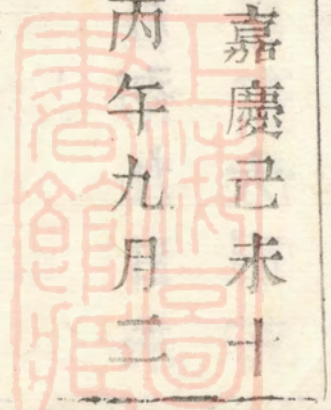 嘉慶己未十
丙午九月二
上海圖
書館藏